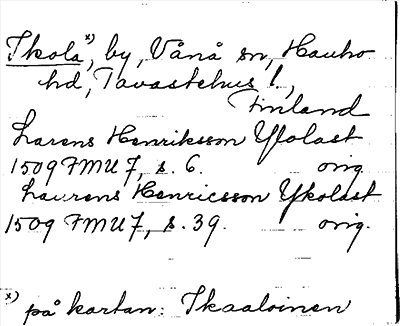 Ikola x), by, Vånå sn, Hauho
hd, Tavastehus l.,
Finland
Larens Henriksson Ylolast
1509 FMU 7, s. 6. orig.
Laurens Henricsson Ykolast
1509 FMU 7, s. 39. orig.
x) på kartan: Ikaaloinen